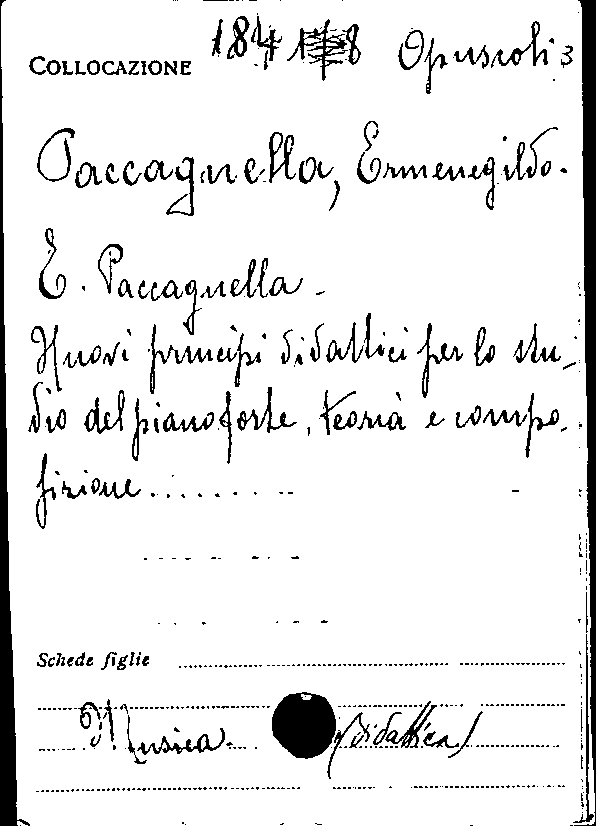 COLLOCAZIONE 184 8 Opuscoli 3
Paccagnella, Ermenegildo.
E. Paccagnella -
Nuovi principi didattici per lo stu-
dio del pianoforte, teoria e compo-
sizione..........
Schede figlie
Musica. (didattica)